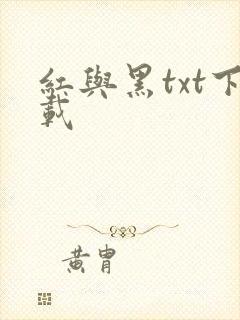 紅與黑txt下
載
黃胄